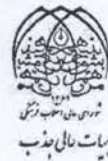 ۱۳۶۳
شورای عالی انقلاب فرهنگی
هیات عالی جذب